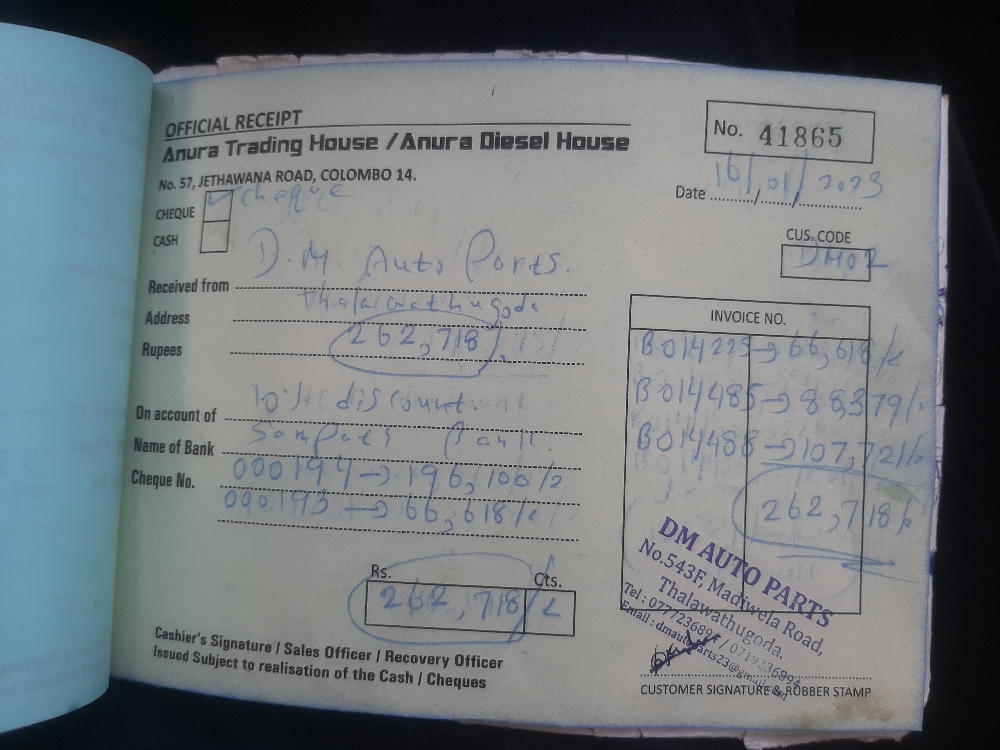 OFFICIAL RECEIPT
Anura Trading House / Anura Diesel House
No. 57, JETHAWANA ROAD, COLOMBO 14.
No. 41865
Date 16/01/2023
CHEQUE cheque
CASH
CUS. CODE
DM02
Received from D.M. Auto Parts.
Address Thalawathugoda
Rupees 262,718/
On account of 10% discount.
Name of Bank Sampath Bank
Cheque No. 000194 → 196,100/=
000193 → 66,618/=
INVOICE NO.
B014225 → 66,618/=
B014485 → 88379/=
B014488 → 107,721/=
262,718/=
Rs. Cts.
262,718/=
Cashier's Signature / Sales Officer / Recovery Officer
Issued Subject to realisation of the Cash / Cheques
DM AUTO PARTS
No.543F, Madiwela Road,
Thalawathugoda.
Tel : 0777236894 / 0719236994
Email : dmautoparts23@gmail.com
CUSTOMER SIGNATURE & RUBBER STAMP